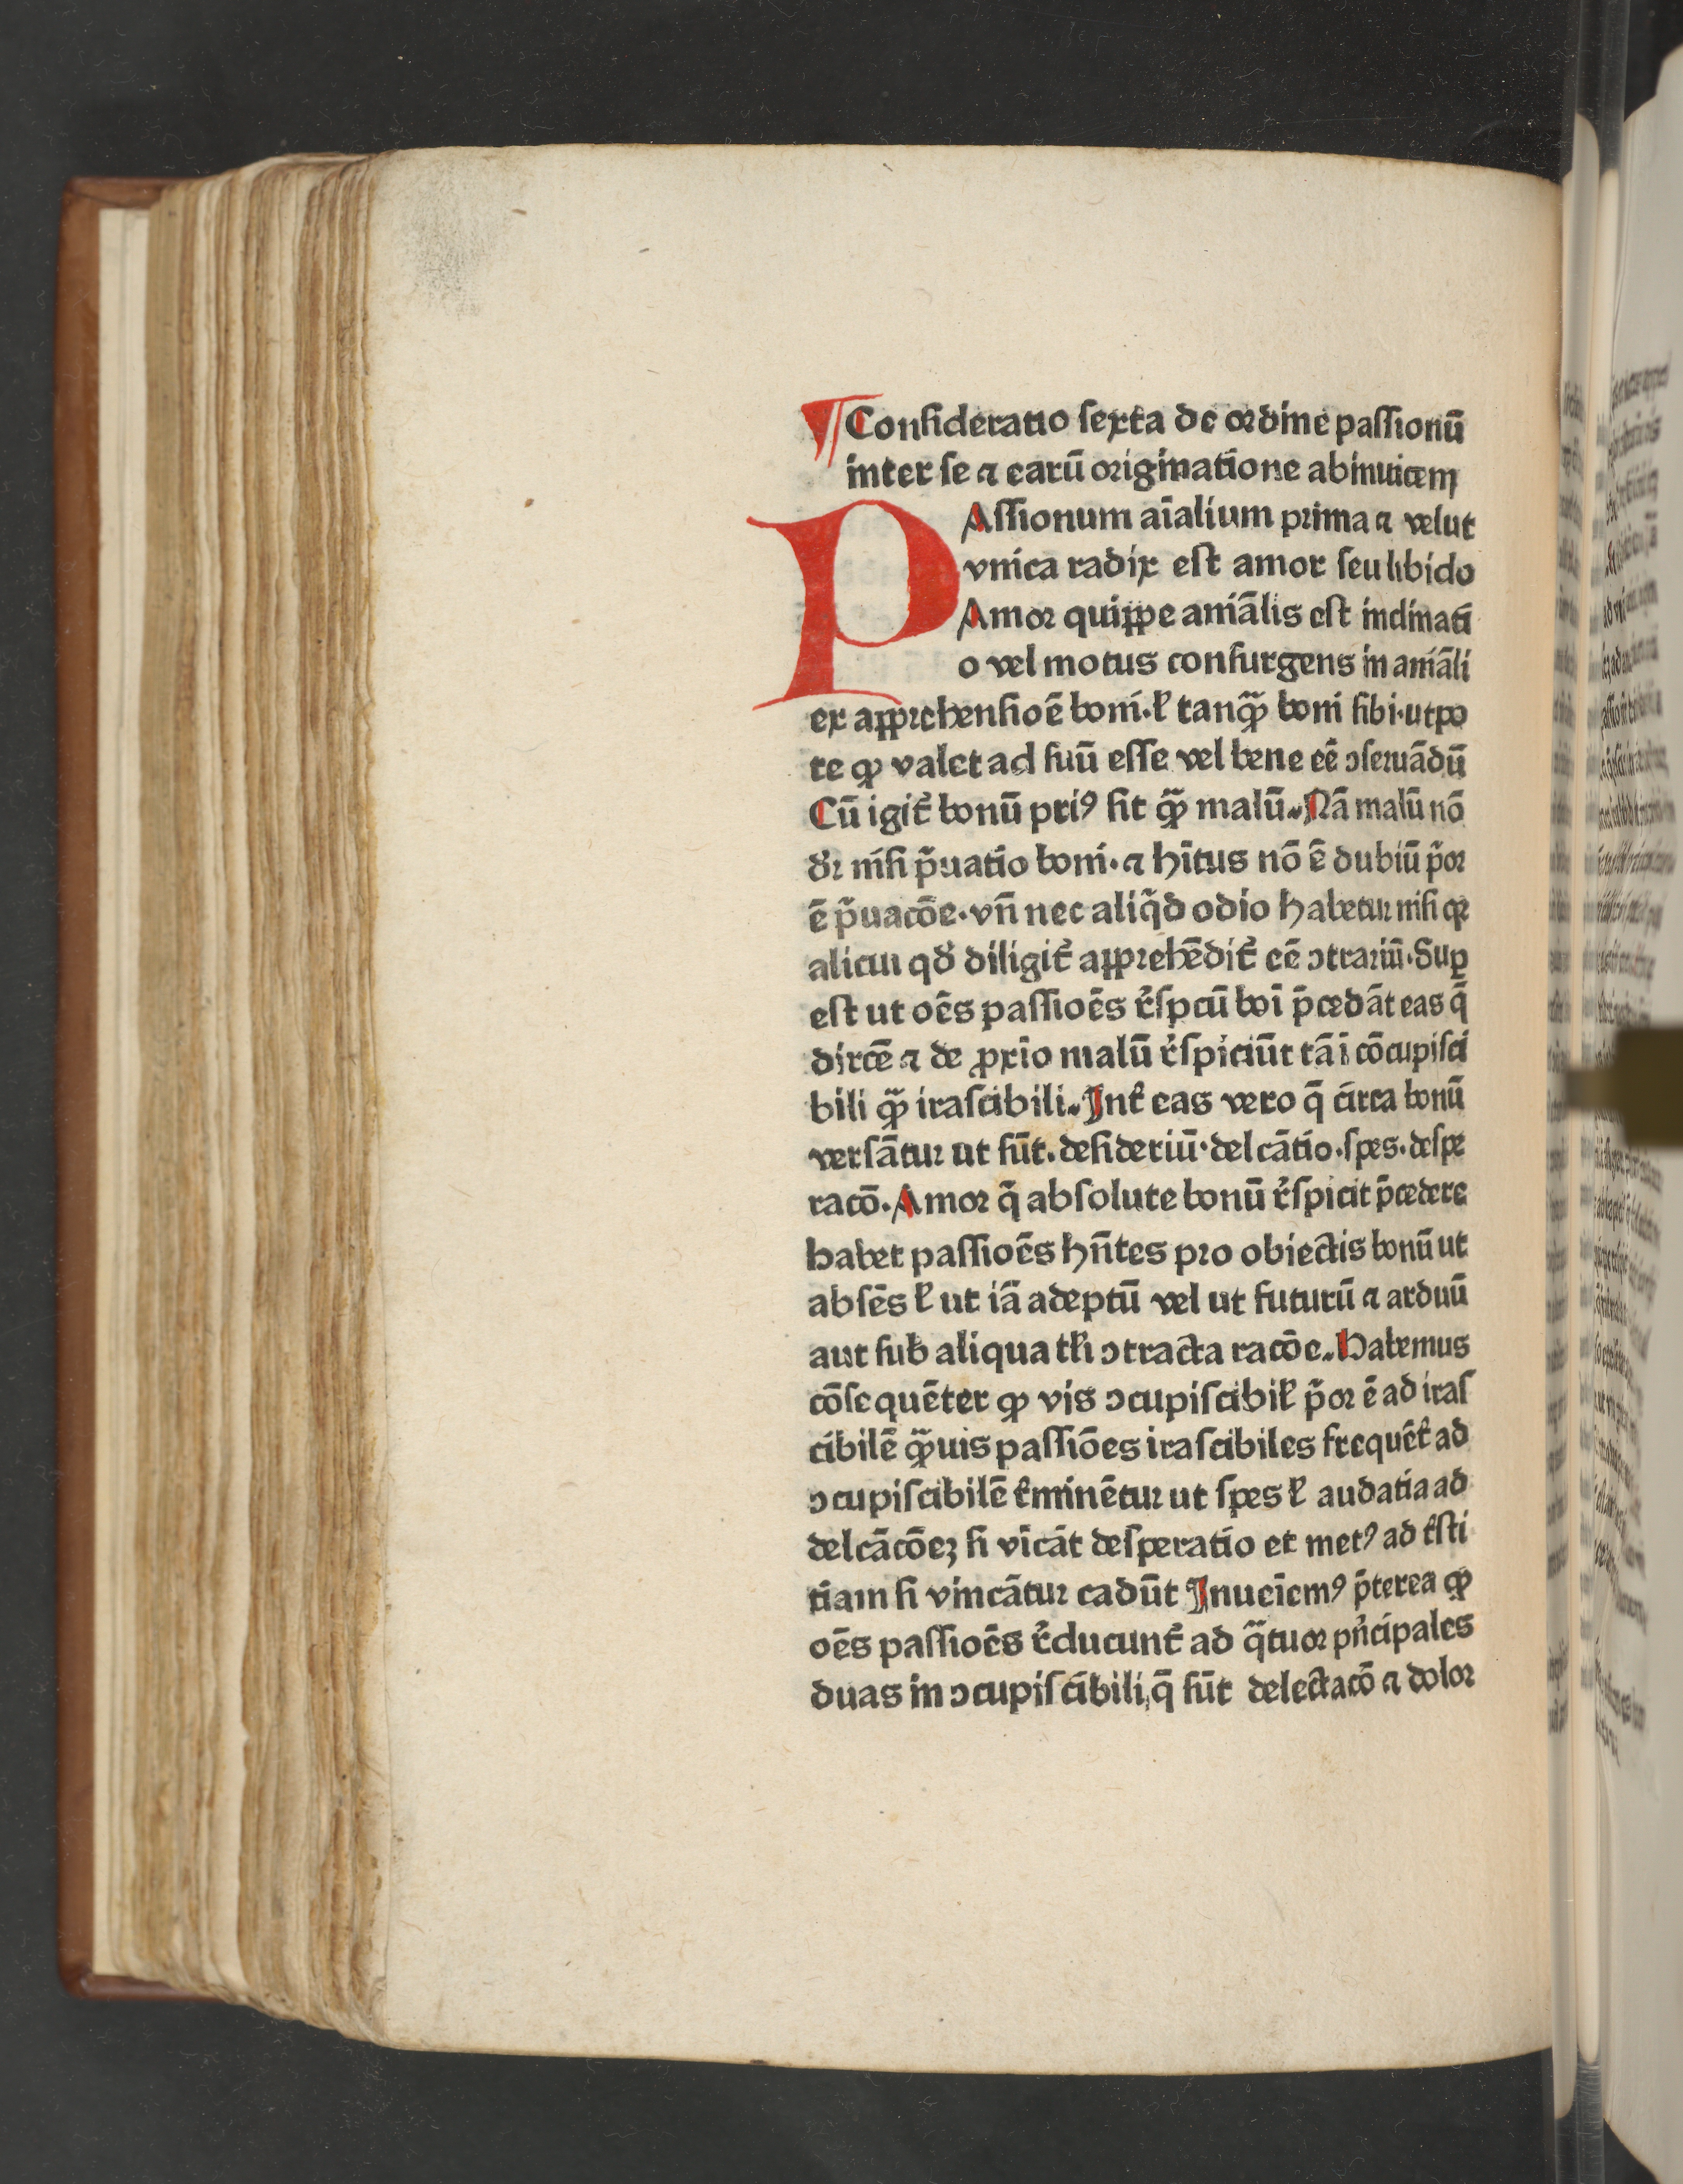 ¶ Conſideratio ſexta de oꝛdine paſſionū
inter ſe ⁊ earū oꝛiginatione abinuicem
PAſſionum aīalium pꝛima ⁊ velut
vnica radix eſt amor ſeu libido
Amoꝛ quippe aniālis eſt inclinati
o vel motus conſurgens in aniāli
ex appꝛehenſioē boni·ł tanꝙ̄ boni ſibi·utpo
te ꝙ valet ad ſuū eſſe vel bene eē ↄſeruādū
Cū igit᷑ bonū priꝰ ſit ꝙ̄ malū.Nā malū nō
dꝛ niſi p̄uatio boni·⁊ hītus nō ē dubiū p̄oꝛ
ē p̄uacōe·vn̄ nec aliq̄d odio habetur niſi qꝛ
alicui qd̓ diligit᷑ appꝛehēdit᷑ eē ↄtrariū·Suꝑ
eſt ut oēs paſſioēs r̓ſpcū boī p̄cedāt eas q̄
dircē ⁊ de ꝓxio malū r̓ſpiciūt tā ī cōcupiſci
bili ꝙ̄ iraſcibili.Int̓ eas vero q̄ circa bonū
verſātur ut ſūt.deſideriū·delcātio·ſpes·deſpe
racō.Amoꝛ q̄ abſolute bonū r̓ſpicit p̄cedere
habet paſſioēs hn̄tes pꝛo obiectis bonū ut
abſēs ł ut iā adeptū vel ut futurū ⁊ arduū
aut ſub aliqua tł̄i ↄtracta racōe.Habemus
cōſequēter ꝙ vis ↄcupiſcibił p̄oꝛ ē ad iraſ
cibilē ꝙ̄uis paſſiōes iraſcibiles frequēt̓ ad
ↄcupiſcibilē t̓minētur ut ſpes ł audatia ad
delcācōeꝫ ſi vīcāt deſperatio et metꝰ ad t̓ſti
tiam ſi vincātur cadūt Inueīemꝰ p̄terea ꝙ
oēs paſſioēs r̓ducunt᷑ ad q̄tuoꝛ pn̓cipales
duas in ↄcupiſcibili,q̄ ſūt delectacō ⁊ doloꝛ